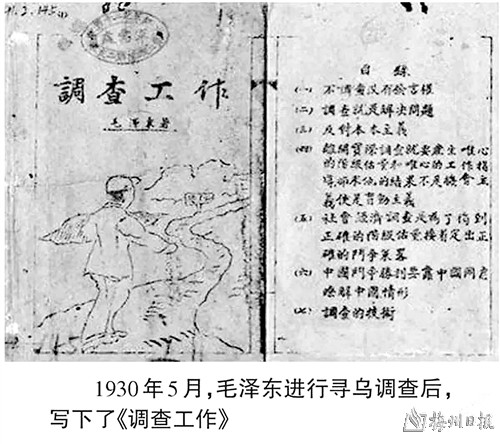 調查工作
毛澤東著
目錄
(一) 不調查沒有發言權
(二) 調查就是解決問題
(三) 反對本本主義
(四) 離開實際調查就要產生唯心
的階級估量和唯心的工作指
導那末他的結果不是機會主
義便是盲動主義
(五) 社會經濟調查是為了得到
正確的階級估量接着定出正
確的鬥爭策畧
(六) 中國鬥爭勝利要靠中國同志
瞭解中國情形
(七) 調查的技術
1930年5月,毛泽东进行寻乌调查后,
写下了《调查工作》
梅州日报